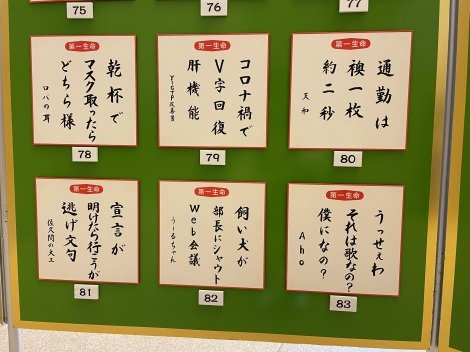 75
76
77
第一生命
乾杯で
マスク取ったら
どちら様
ロバの耳
78
第一生命
コロナ禍で
V字回復
肝機能
79
第一生命
通勤は
襖一枚
約二秒
80
第一生命
宣言が
明けたら行こうが
逃げ文句
佐久間の大工
81
第一生命
飼い犬が
部長にシャウト
Web会議
うーるちゃん
82
第一生命
うっせぇわ
それは歌なの?
僕になの?
Aho
83